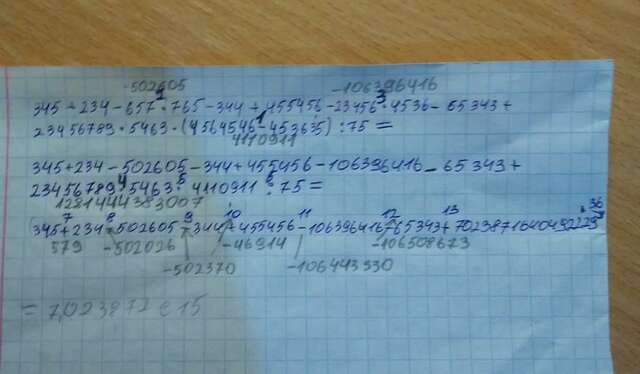 -502605 -106396416
345+234-657·765-344+455456-23456·4536-65343+
23456789·5463·(4564546-453635):75=
4110911
345+234-502605-344+455456-106396416-65343+
23456789·5463·4110911:75=
128144438 3007
345+234-502605-344+455456-106396416-65343+7023871640492229,36
579 -502026 -46914 -106508673
-502370 -106443330
=7,023872 e15